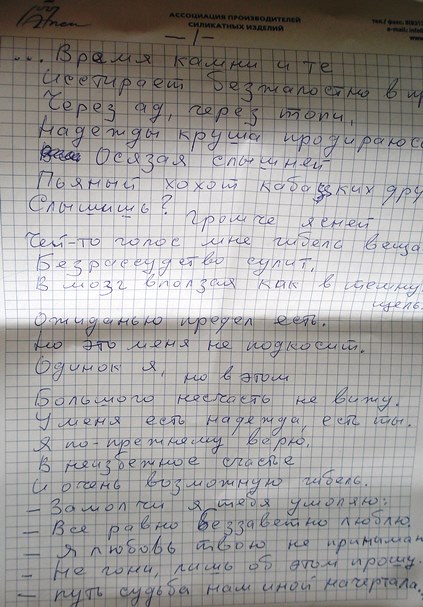 АССОЦИАЦИЯ ПРОИЗВОДИТЕЛЕЙ
СИЛИКАТНЫХ ИЗДЕЛИЙ
тел./факс:
e-mail:
- 1 -
... Время камни и те
Исстирает безжалостно в
Через ад, через топи,
Надежды круша продираюсь
Осязая слышней
Пьяный хохот кабацких
Слышишь?
Громче ясней
Чей-то голос мне гибель
Безрассудство сулит,
В мозг вползая как в
щель.
Ожиданью предел есть.
Но это меня не подкосит.
Одинок я,
но в этом
Большого несчасть не вижу.
У меня есть надежда, есть ты.
Я по-прежнему верю.
В неизбежное счастье
И очень возможную гибель.
- Замолчи я тебя умоляю:
- Все равно беззаветно люблю.
- Я любовь твою не
- Не гони, лишь об этом прошу.
- Путь судьба нам иной начертала.